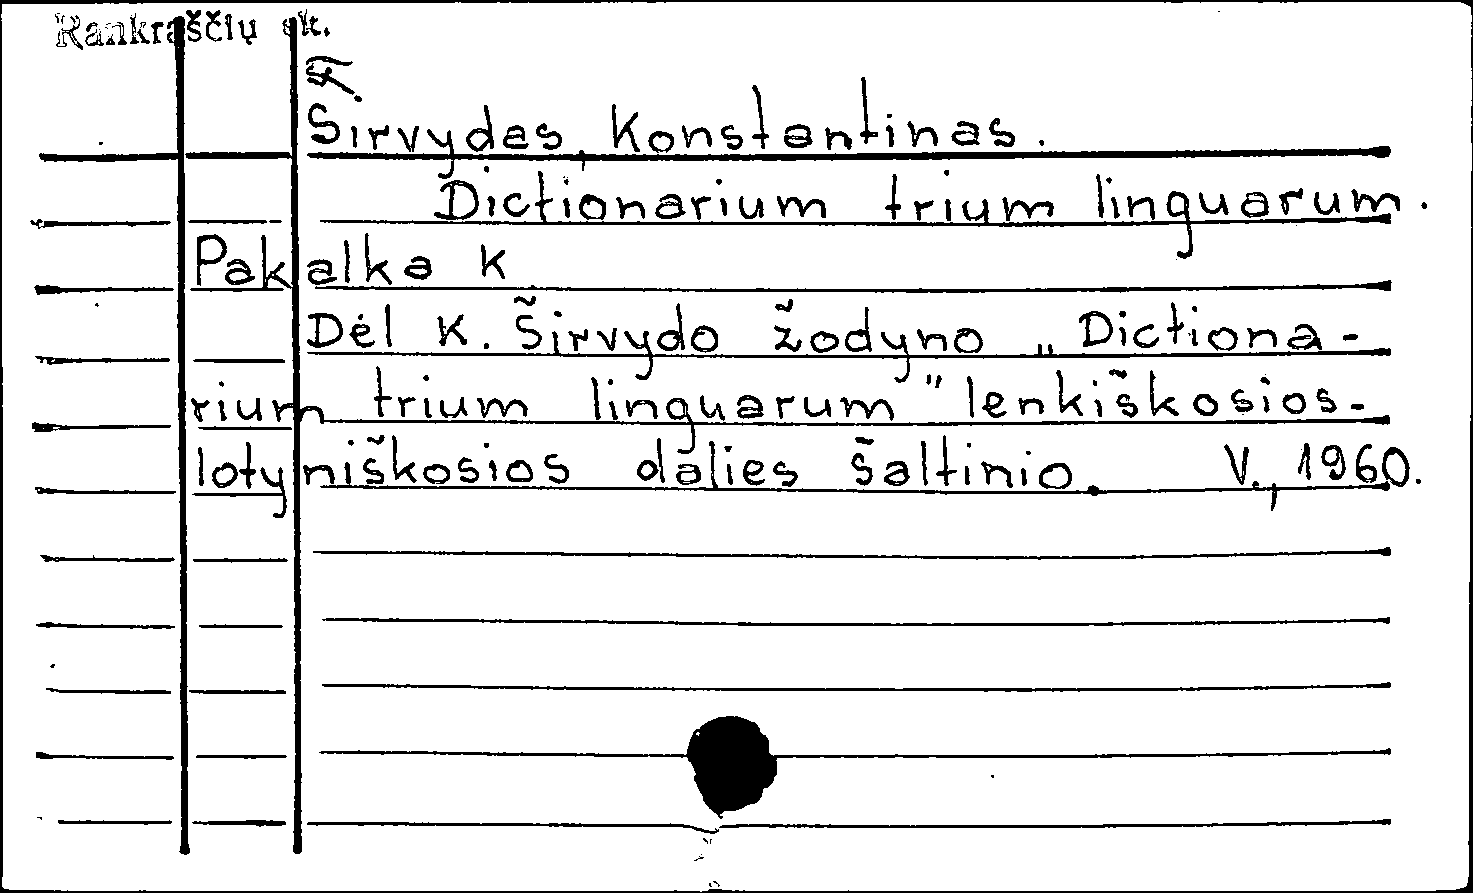 Rankraščių sk.
Širvydas, Konstantinas.
Dictionarium trium linguarum.
Pakalka K
Dėl K. Širvydo žodyno „Dictiona-
rium trium linguarum" lenkiškosios-
lotyniškosios dalies šaltinio. V., 1960.